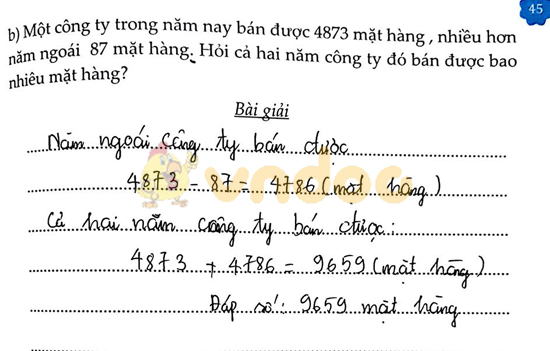 45
b) Một công ty trong năm nay bán được 4873 mặt hàng , nhiều hơn
năm ngoái 87 mặt hàng. Hỏi cả hai năm công ty đó bán được bao
nhiêu mặt hàng?
Bài giải
Năm ngoái công ty bán được
4873 - 87 = 4786 (mặt hàng)
vndoc
Cả hai năm công ty bán được:
4873 + 4786 = 9659 (mặt hàng)
Đáp số: 9659 mặt hàng